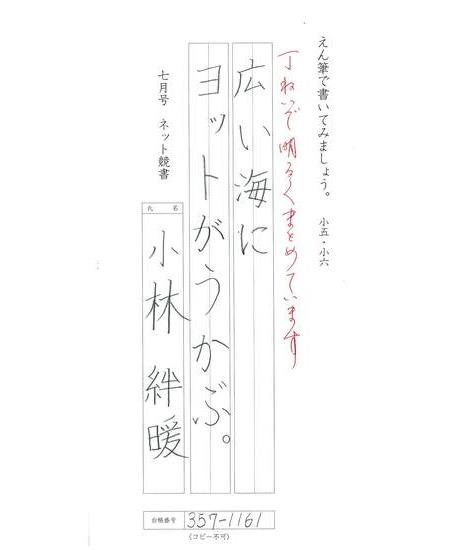 えん筆で書いてみましょう。 小五・小六
丁ねいで明るくまとめています
広い海に
ヨットがうかぶ。
七月号 ネット競書
氏名
小林絆暖
台帳番号 357-1161
(コピー不可)